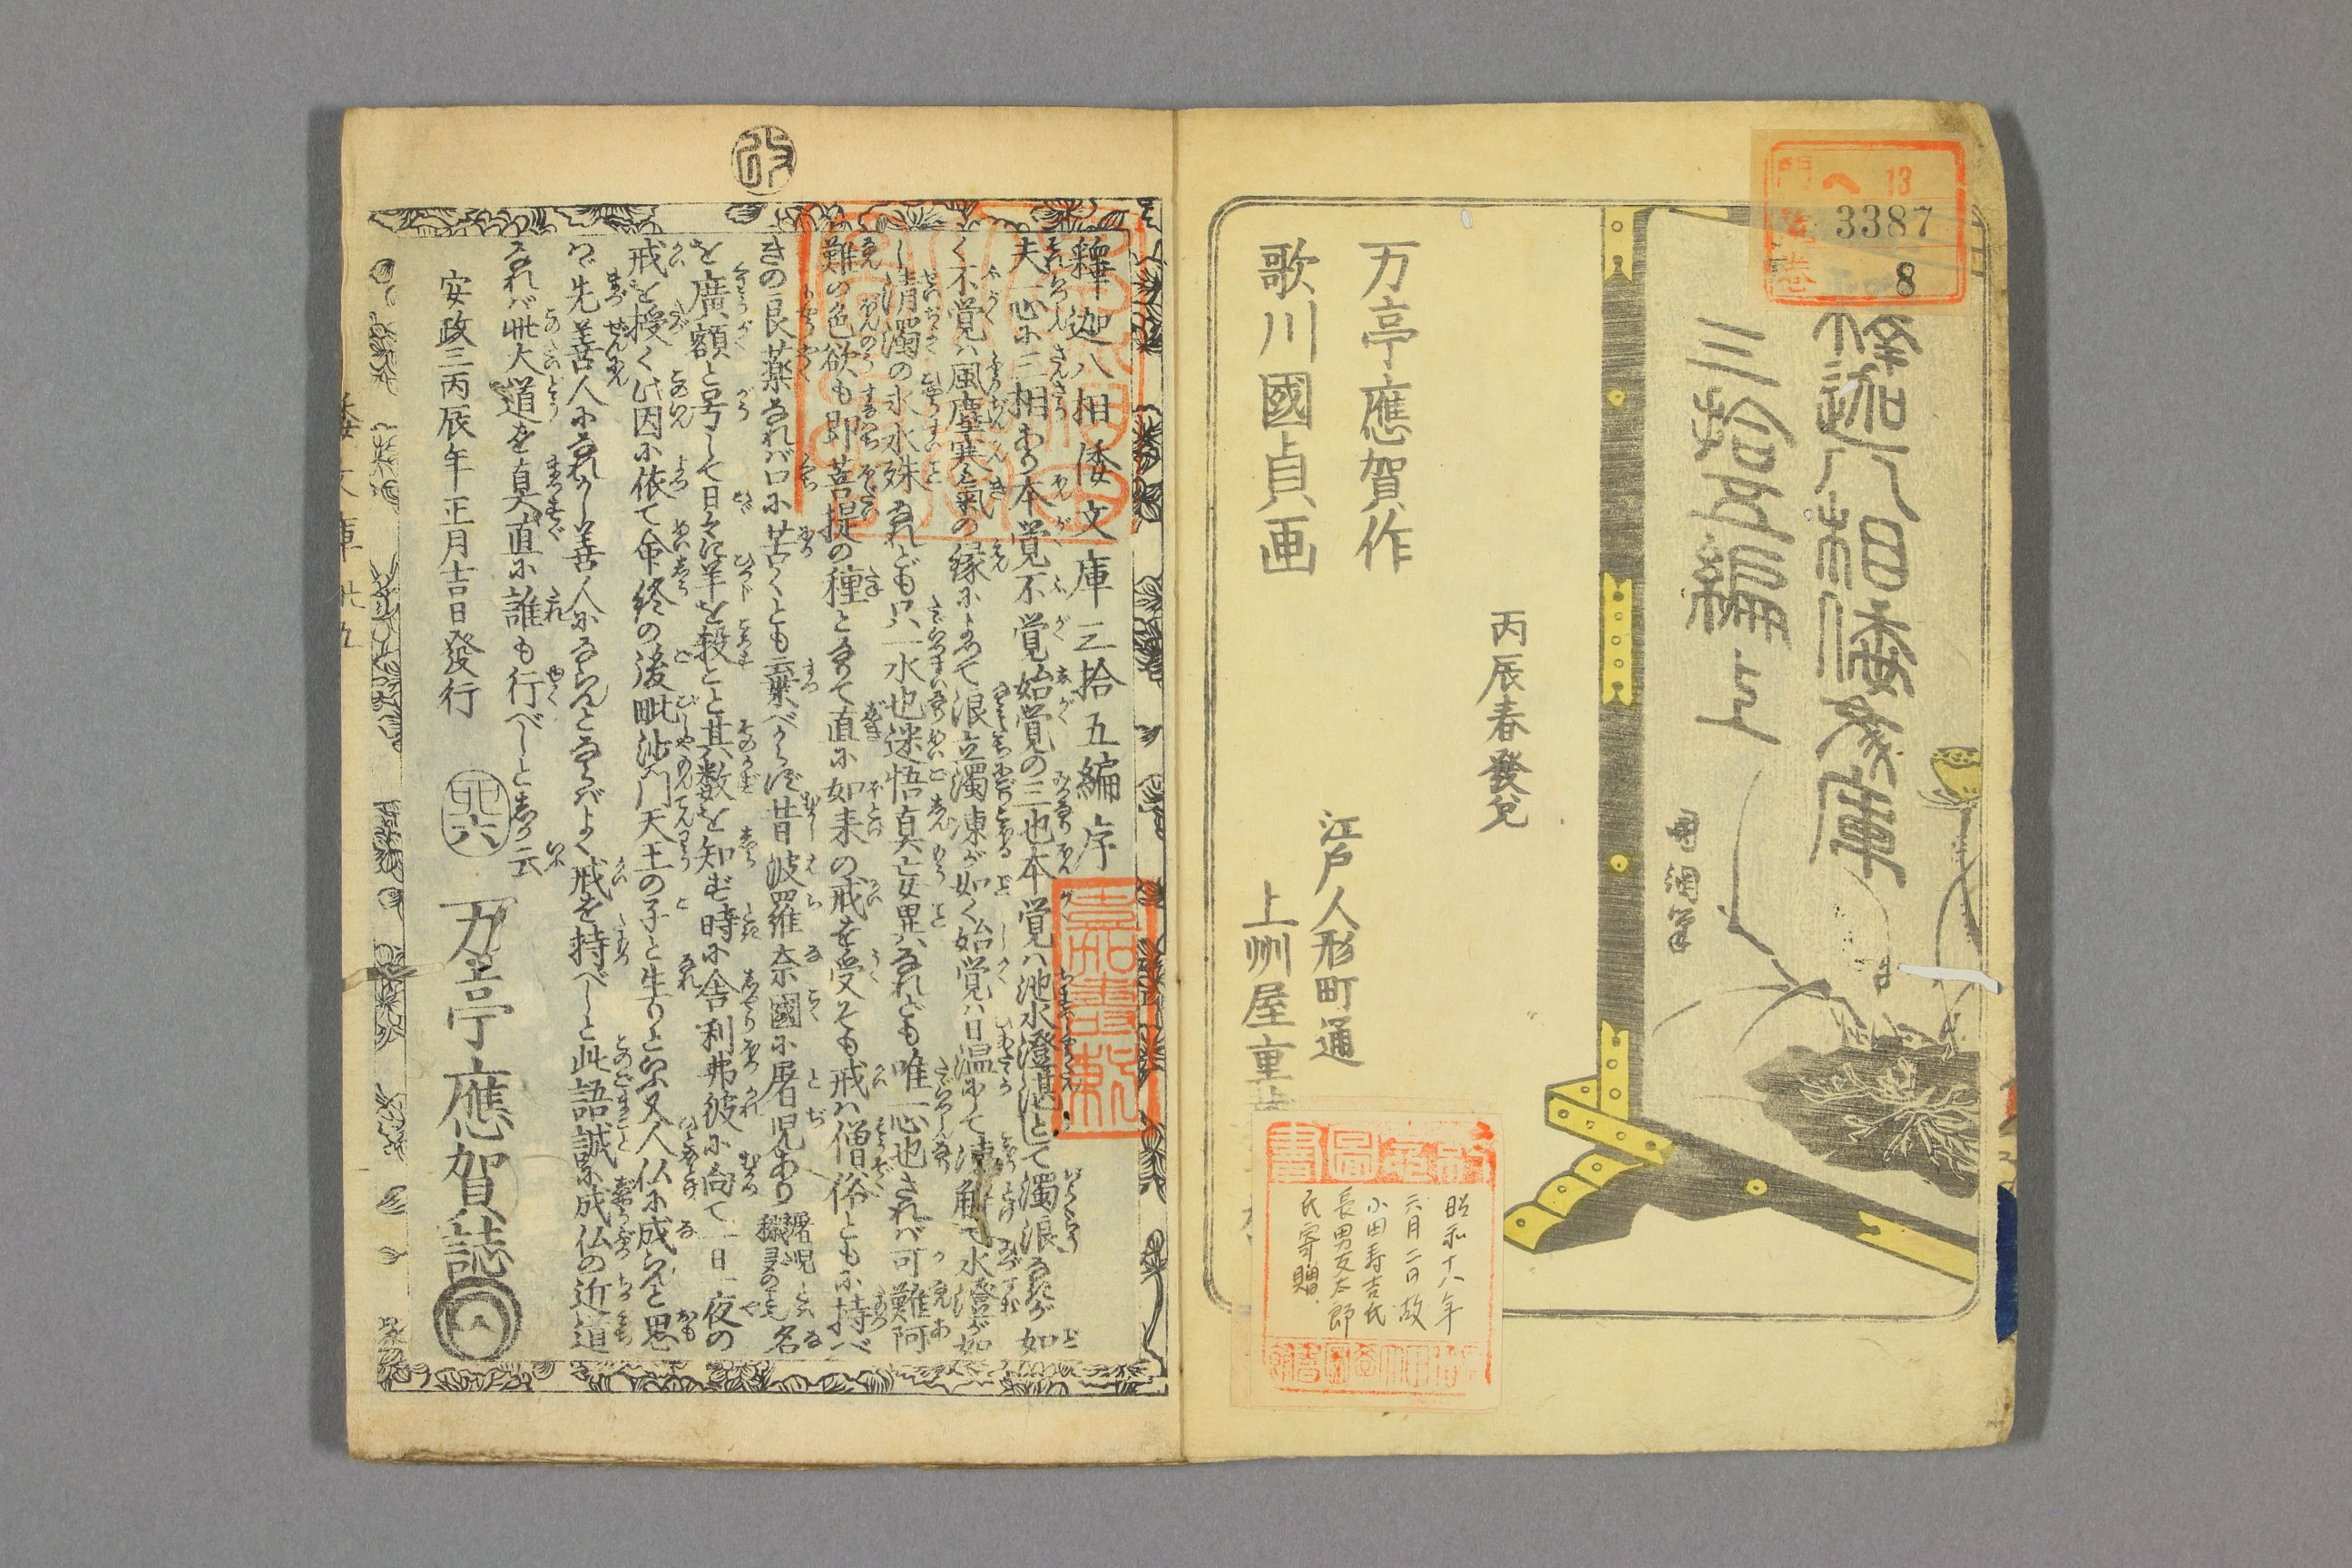 門
ヘ 13
3387
8
巻
釋迦八相倭文庫
三拾五編 上
國綱筆
丙辰春發兌
万亭應賀作
歌川國貞画
江戸人形町通
上州屋重蔵
昭和十八年
六月二日故
小田寿吉氏
長男友太郎
氏寄贈
改
釋迦八相倭文庫三拾五編序
夫一心に三相あり本覚不覚始覚の三也本覚ハ池水澄湛として濁浪なきが如
く不覚ハ風塵寒氣の縁によつて浪立濁凍が如く始覚ハ日温にして凍解て水澄が如
し清濁の水氷殊なれども只一水也迷悟真妄異ハなれども唯一心也されバ可難阿
難の色欲も即菩提の種となりて直に如来の戒を受そも戒ハ僧俗ともに持べ
きの良薬なれバ口に苦くとも棄べからず昔波羅奈國に屠児あり 名
を廣額と号して日々に羊を殺こと其数を知ず時に舎利弗彼に向て一日一夜の
戒を授く此因に依て命終の後毗沙門天王の子と生りといふ又人仏に成らんと思
はゞ先善人になれかし善人にならんとならバよく戒を持べしと此語誠に成仏の近道
なれバ此大道を真直に誰も行べしとしか云
安政三丙辰年正月吉日發行
万亭應賀誌
倭文庫 卅五